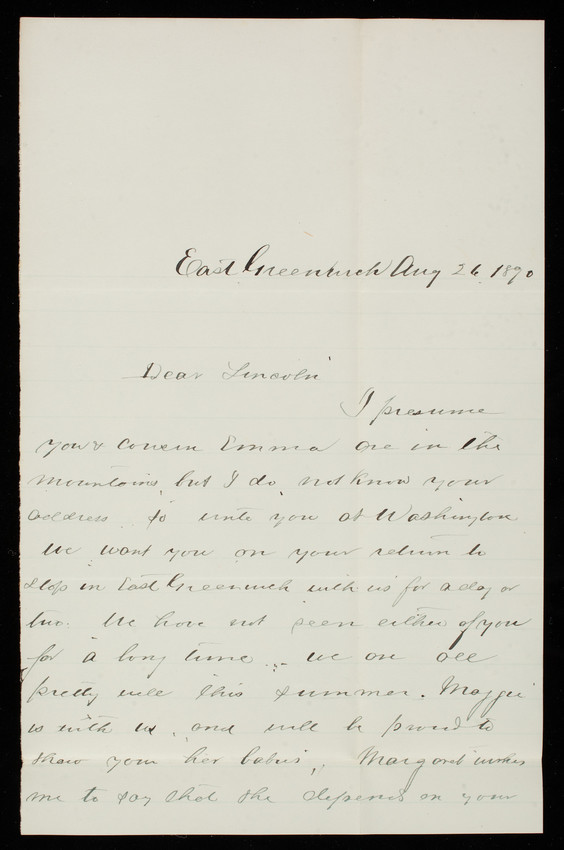 East Greenwich Aug 26. 1890
Dear Lincoln
I presume
you & cousin Emma are in the
mountains, but I do not know your
address so write you at Washington
We want you on your return to
stop in East Greenwich with us for a day or
two. We have not seen either of you
for a long time. – we are all
pretty well this summer. Maggie
is with us, and will be proud to
show you her babies, Margaret wishes
me to say that she depends on your